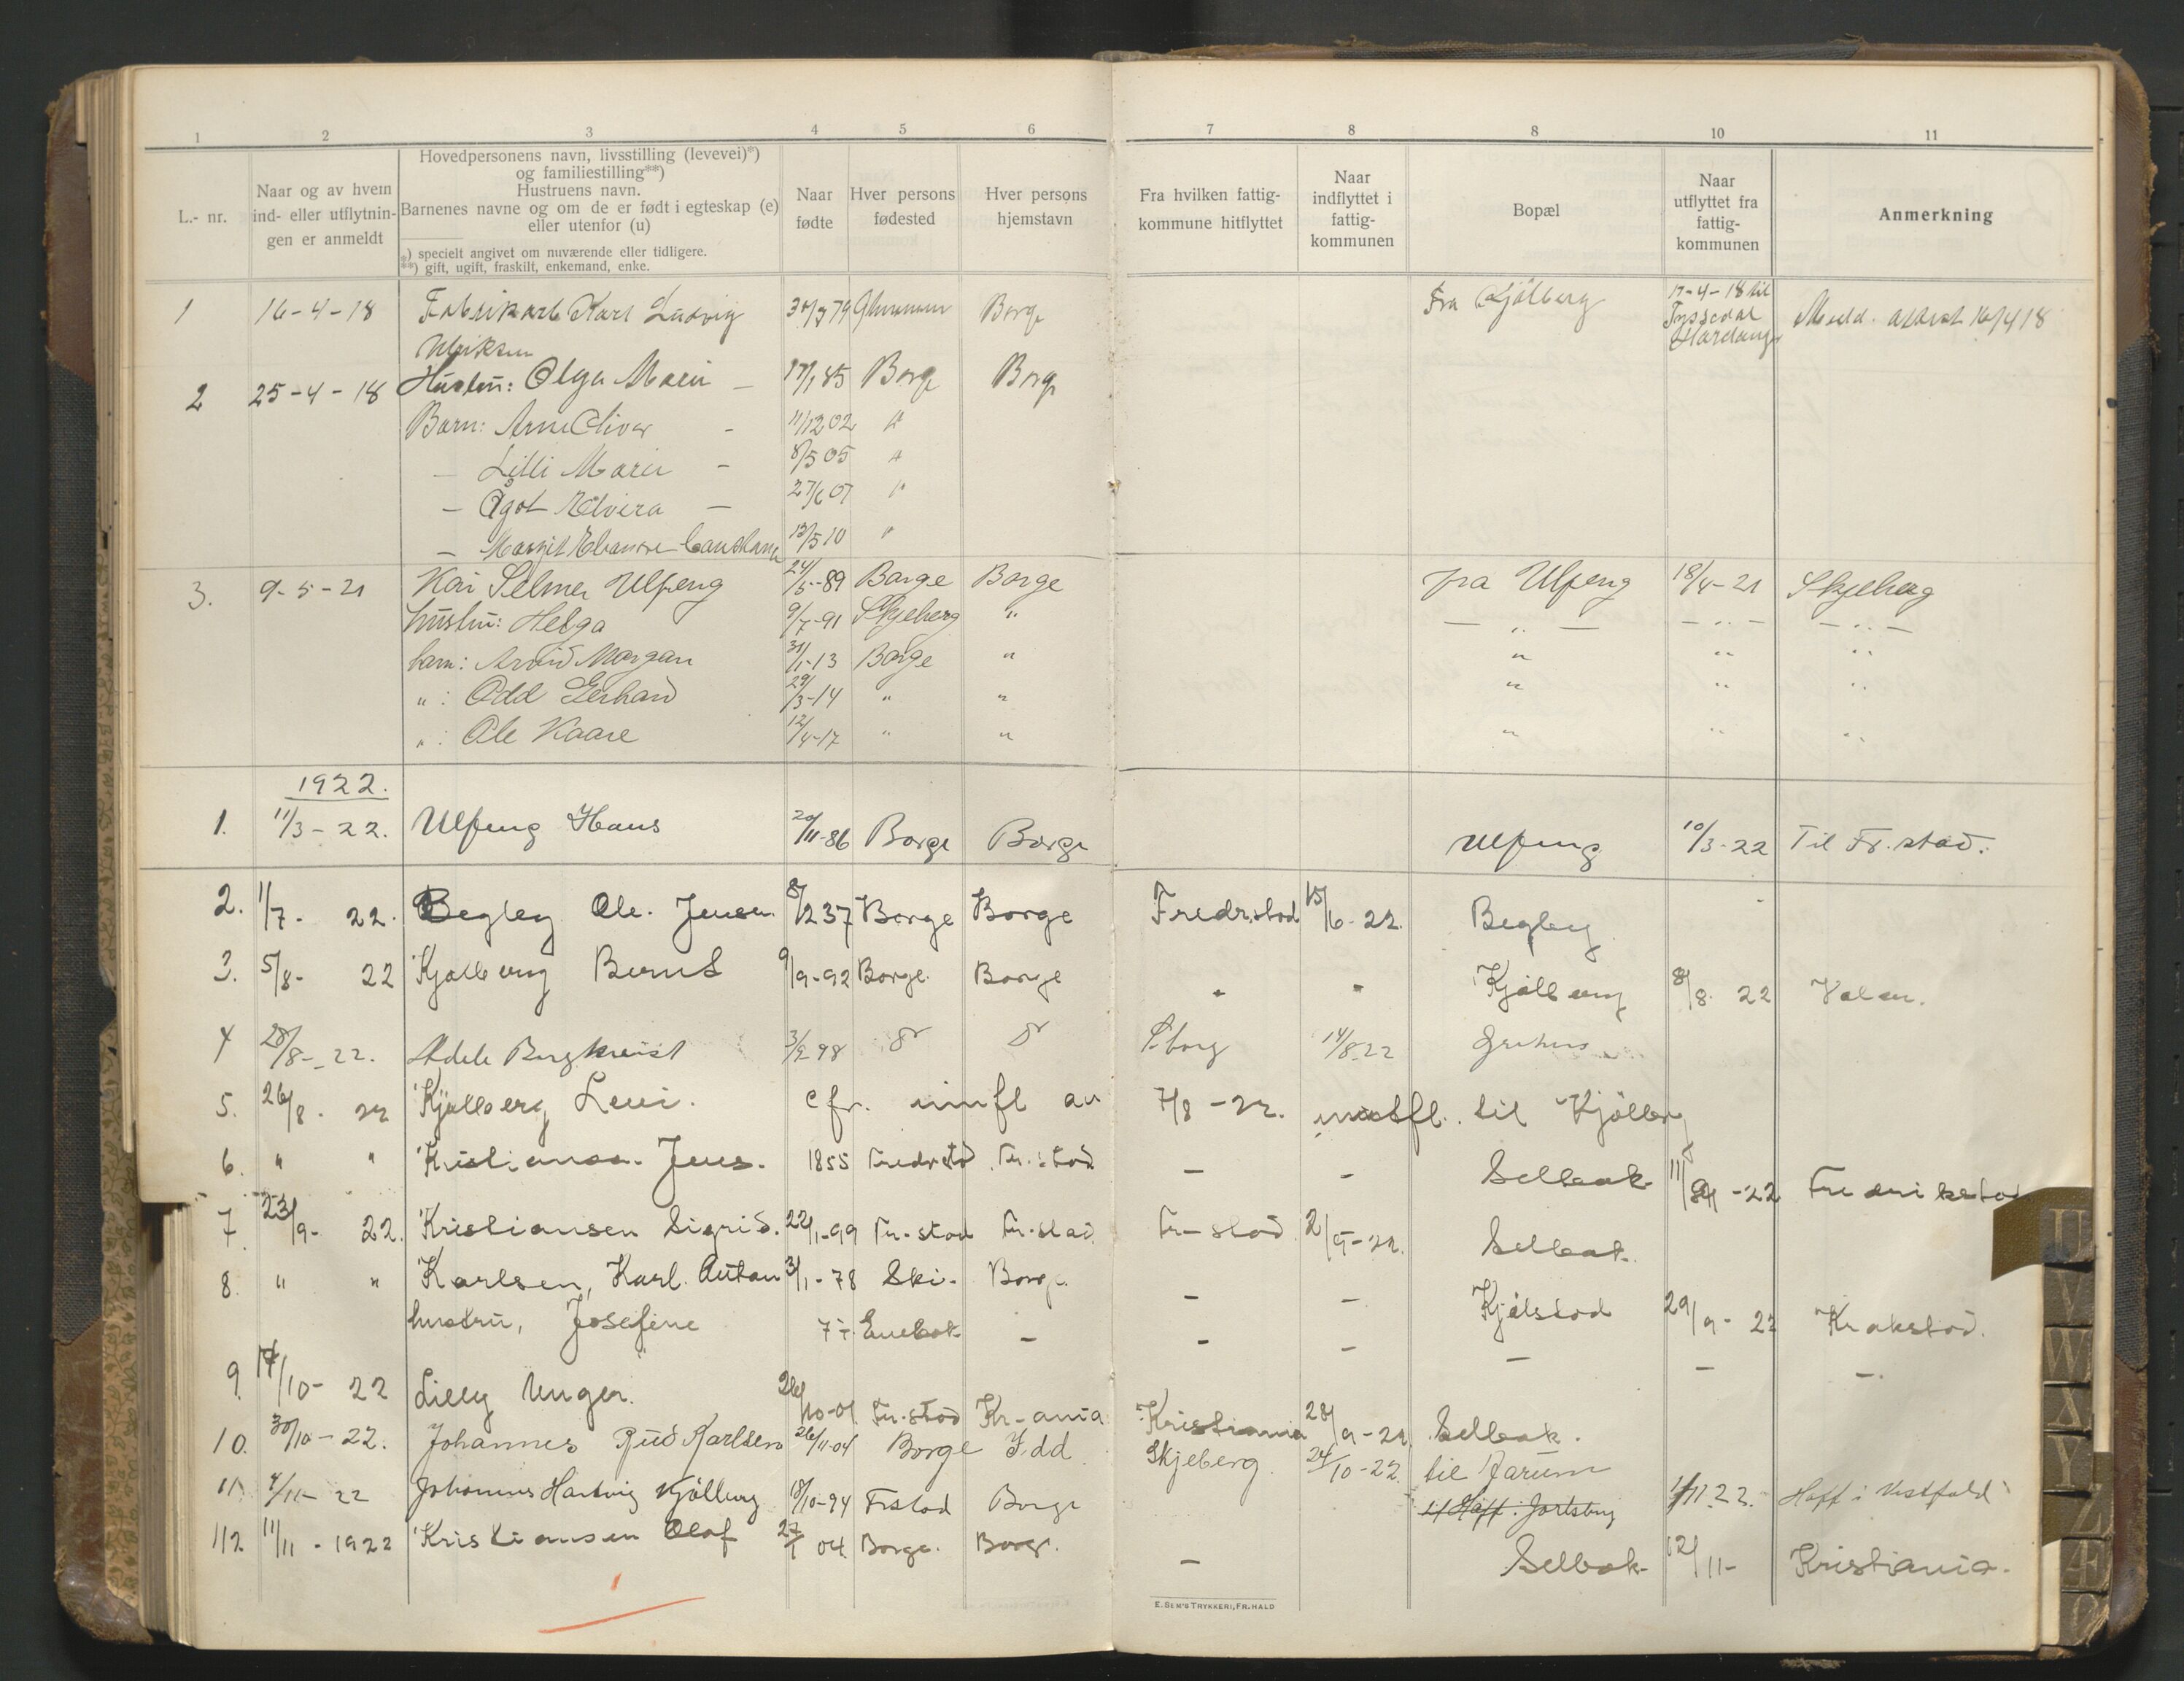 1 2 3 4 5 6 7 8 8 10 11
L.- nr.
Naar og av hvem
ind- eller utflytnin-
gen er anmeldt
Hovedpersonens navn, livsstilling (levevei)*)
og familiestilling**)
Hustruens navn.
Barnenes navne og om de er født i egteskap (e)
eller utenfor (u)
*) specielt angivet om nuværende eller tidligere.
**) gift, ugift, fraskilt, enkemand, enke.
Naar
fødte
Hver persons
fødested
Hver persons
hjemstavn
Fra hvilken fattig-
kommune hitflyttet
Naar
indflyttet i
fattig-
kommunen
Bopæl
Naar
utflyttet fra
fattig-
kommunen
Anmerkning
1 16-4-18 Fabrikarb Karl Ludvig Borge Fra Kjølberg 17-4-18 til Tyssedal Hardanger 16/4 18
2 25-4-18 Hustru: Olga Marie — 17/1 85 Borge Borge
Barn: Arne Oliver - 11/12 02 "
— Lilli Marie — 8/5 05 "
— Ågot Elvira — 27/6 07 "
— Margit 13/5 10 "
3. 9-5-21 Kai Selmer Ulfeng 24/5-89 Borge Borge fra Ulfeng 18/4-21 Skjeberg
hustru: Helga 9/7-91 Skjeberg " — " — — " — — " —
barn: Arvid Morgan 31/1-13 Borge " " " "
" : Odd Gerhard 29/3-14 " " " " "
" : Ole Kaare 12/4-17 " " " " "
1922.
1. 11/3-22. Ulfeng Hans 20/11-86 Borge Borge Ulfeng 10/3-22 Til Fr.stad.
2. 11/7- 22. Begby Ole. Jensen 8/12 37 Borge Borge Fredr.stad 15/6-22. Begby
3. 5/8- 22 Kjølberg Bernt 9/9-92 Borge. Borge " " Kjølberg 8/8. 22
4 28/8-22. Adele Bergkvist 3/2 98 S.borg 14/8-22
5. 26/8. 22 Kjølberg Levi. cfr. innfl av 7/8-22. til Kjølberg
6. " " Kristianse. Jens. 1855 Fredrstad Fr.stad — — Selbak 11/9-22 Fredrikstad
7. 23/9- 22. Kristiansen Sigrid. 22/1-99 Fr-stad Fr.stad. Fr-stad 2/9-22. Selbak.
8. " " Karlsen, Karl. Anton 3/1-78 Ski. Borge. — — Kjølstad 29/9-22 Krakstad.
hustru, Josefine 77. Enebak — — — — — —.
9. 17/10- 22 Lilly Unger. 26/10-01 Fr.stad Kr-ania Kristiania 28/9-22. Selbak.
10. 30/10-22. Johannes Rud Karlsen 26/11-04 Borge Idd Skjeberg. 24/10-22. til Jarum
11 4/11-22 Johannes Hartvig Kjølberg 18/10-94 Frstad Borge til Hoff i Jarlsberg 1/11 22. Hoff i Vestfold
12 11/11-1922 Kristiansen Olaf 27/1 04. Borge. Borge. — Selbak 12/11- Kristiania.
E. SEM'S TRYKKERI, FR.HALD
U
V
W
X
Y
Z
Æ
Ø